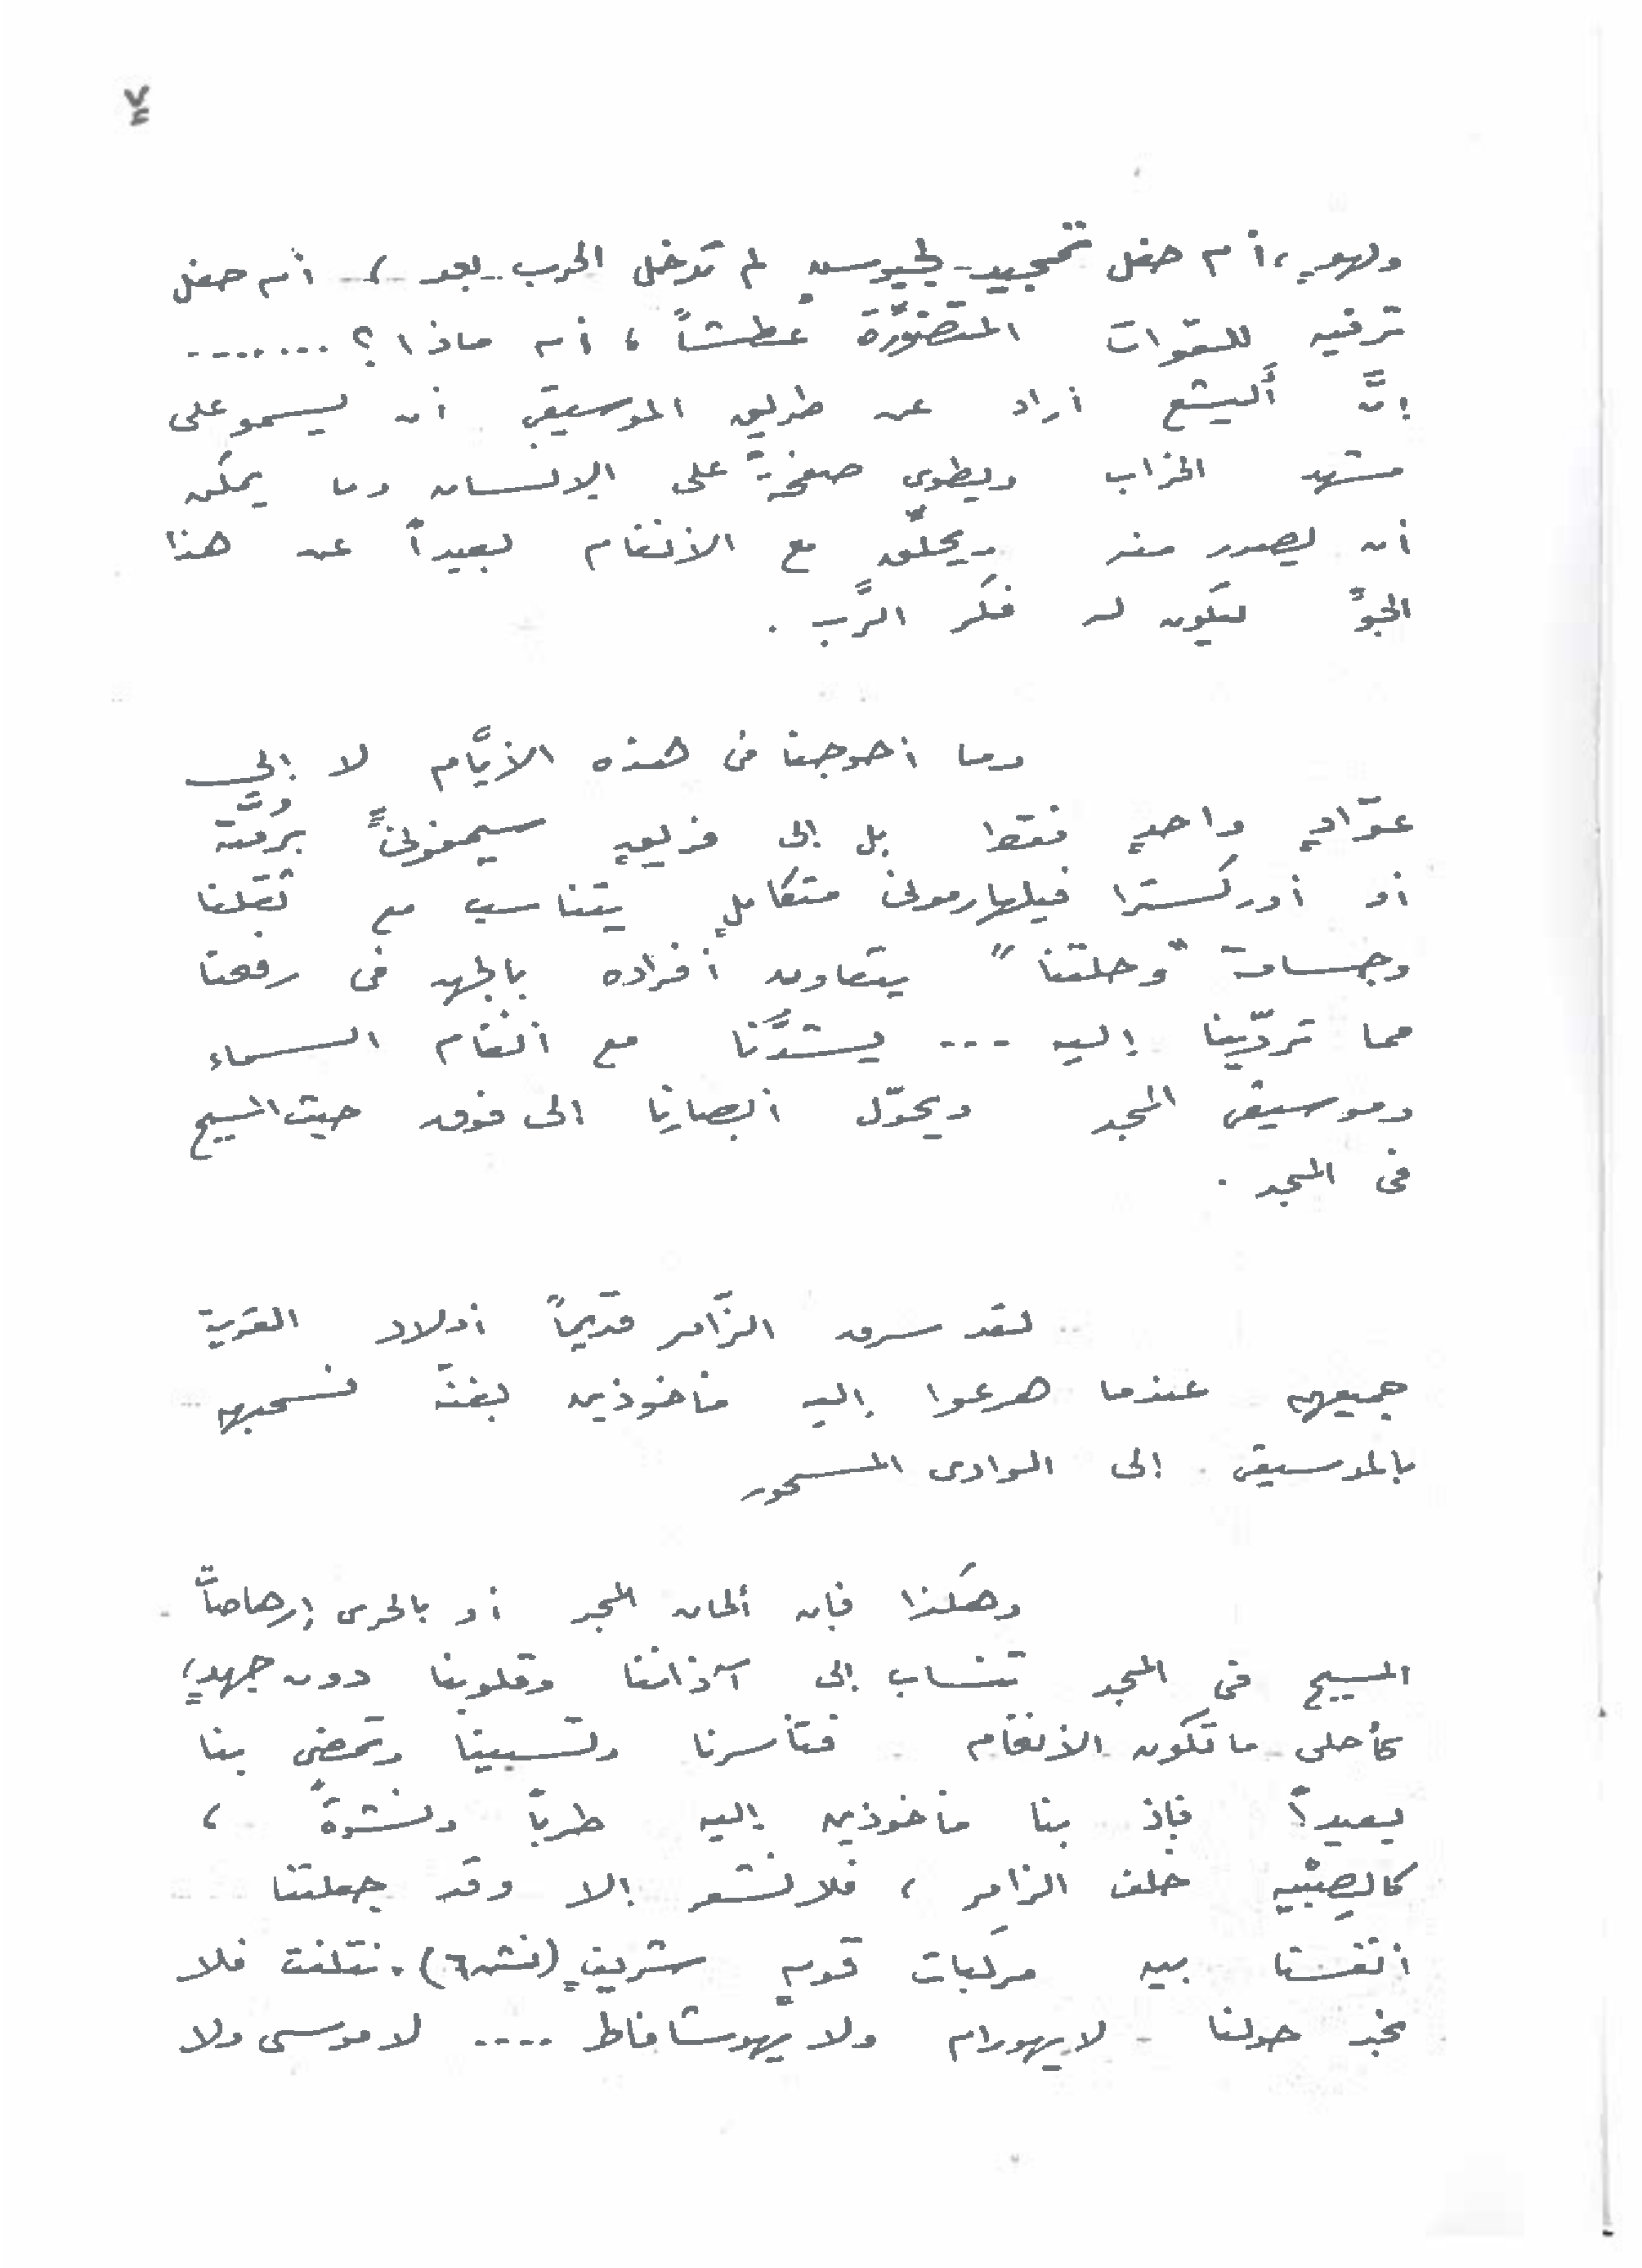 ولهوٍ، أم حفل تمجيد لجيوسٍ لم تدخل الحرب بعد، أم حفل
ترفيه للقوّات المتضوّرة عطشاً، أم ماذا؟ ........
إنَّ أليشع أراد عن طريق الموسيقى أن يسمو على
مشهد الخراب ويطوى صفحةً على الإنسان وما يمكن
أن يصدر منه ويحلّق مع الأنغام بعيداً عن هذا
الجوِّ ليكون له فكر الرَّب .
وما أحوجنا فى هذه الأيَّام لا إلى
عوّادٍ واحدٍ فقط بل إلى فريقٍ سيمفونىٍّ برُمَّته
أو أوركسترا فيلهارمونى متكاملٍ يتناسب مع ثقلنا
وجسامة "وحلتنا" يتعاون أفراده بالجهد فى رفعنا
مما تردّينا إليه ... يشدَّنا مع أنغام السماء
وموسيقى المجد ويحوّل أبصارنا إلى فوق حيث المسيح
فى المجد .
لقد سرق الزَّامر قديماً أولاد القرية
جميعهم عندما هرعوا إليه مأخوذين بغتة فسحبهم
بالموسيقى إلى الوادى المسحور
وهكذا فإن ألحان المجد أو بالحرى إرهاصات
المسيح فى المجد تنساب إلى آذاننا وقلوبنا دون جهدٍ،
كأحلى ما تكون الأنغام فتأسرنا وتسبينا وتمضى بنا
بعيداً فإذ بنا مأخوذين إليه طرباً ونشوةً ،
كالصِبْيه خلف الزامر ، فلا نشعر إلا وقد جعلتنا
أنفسنا بين مركبات قومٍ شريفٍ (نش٦). نتلفت فلا
نجد حولنا لا يهورام ولا يهوشافاط .... لا موسى ولا